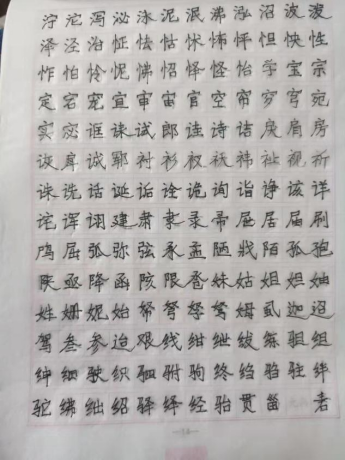 泞沱泻泌泳泥泯沸泓沼波泼
泽泾治怔怯怙怵怖怦怛怏性
怍怕怜怩怫怊怿怪怡学宝宗
定宕宠宜审宙官空帘穸穹宛
实宓诓诔试郎诖诗诘戾肩房
诙戽诚郓衬衫衩祆祎祉视祈
诛诜话诞诟诠诡询诣诤该详
诧诨诩建肃隶录帚屉居届刷
鸤屈弧弥弦承孟陋戕陌孤孢
陕亟降函陔限卺妹姑妲姐妯
姓姗妮始帑弩孥驽姆虱迦迢
驾叁参迨艰线绀绁绂练驵组
绅细驶织驷驸驹终绉驺驻绊
驼绋绌绍驿绎经骀贯甾